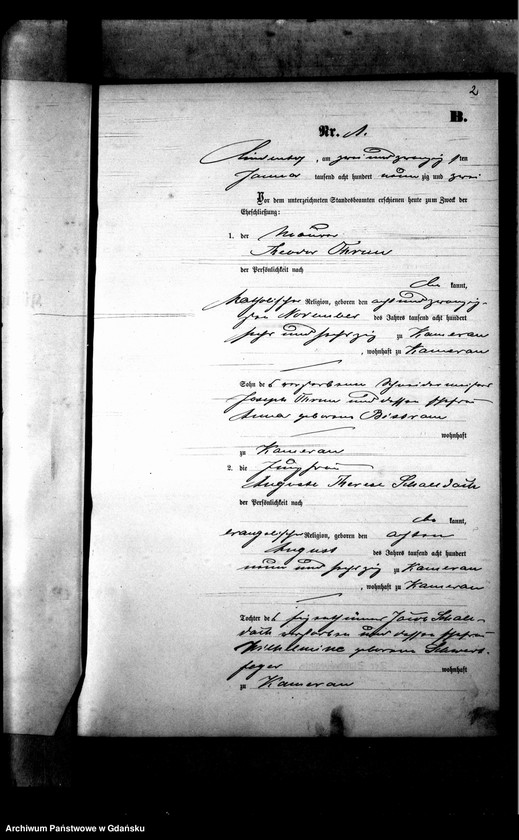 2
B.
Nr. 1.
, am zwei und zwanzig ten
Januar tausend acht hundert neun zig und zwei
Vor dem unterzeichneten Standesbeamten erschienen heute zum Zweck der
Eheschließung:
1. der Maurer
Theodor Thrun
der Persönlichkeit nach
be kannt,
katholischer Religion, geboren den acht und zwanzig-
sten November des Jahres tausend acht hundert
sechs und sechszig zu Kameran
, wohnhaft zu Kameran
Sohn des verstorbenen Schneidermeister
Joseph Thrun und dessen Ehefrau
Anna geborene
wohnhaft
zu Kameran
2. die Jungfrau
Auguste Therese Schaldach
der Persönlichkeit nach
be kannt,
evangelischer Religion, geboren den achten
August des Jahres tausend acht hundert
neun und sechszig zu Kameran
, wohnhaft zu Kameran
Tochter des Eigenthümer Jacob Schal-
dach verstorben und dessen Ehefrau
Wilhelmine geborene Schwert-
feger wohnhaft
zu Kameran
Archiwum Państwowe w Gdańsku